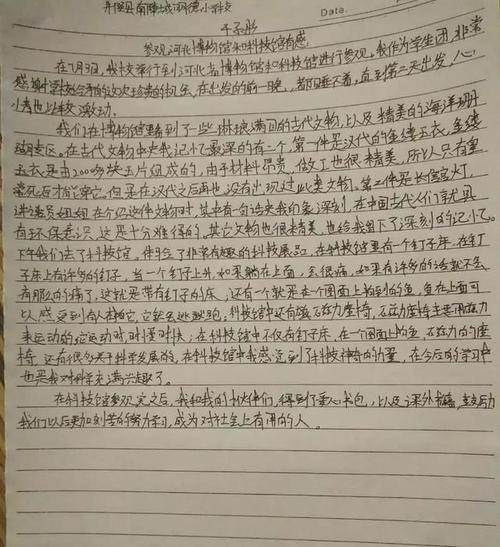 Date.
参观河北博物馆和科技馆有感
在7月3日,我校举行到河北省博物馆和科技馆进行参观。我作为学生团,非常
感谢学校给予的这次珍贵的机会,在出发的前一晚,都睡不着,直到第二天出发,心
情也比较激动。
我们在博物馆看到了一些琳琅满目的古代文物,以及精美的海洋珊
瑚专区。在古代文物中央我记忆最深的有二个。第一件是汉代的金缕玉衣,金缕
玉衣是由2000多块玉片组成的,由于材料昂贵,做工也很精美,所以只有皇
亲死后才能穿它。但是在汉代之后再也没有出现过此类文物。第二件是长信宫灯,
讲述员姐姐在介绍这件文物时,其中有一句话令我印象深刻,在中国古代人们就具
有环保意识,这是十分难得的。其它文物也很精美,也给我留下了深刻的记忆。
下午我们去了科技馆,体验了非常有趣的科技展品,在科技馆里有一个钉子床,在钉
子床上有许多的钉子,当一个钉子上升,如果躺在上面,会很痛,如果有许多的话就不会
有那么的痛了,这就是带有钉子的床,还有一个就是在圆面上拍到的鱼,鱼在上面可
以感受到有人拍它,它就会逃跑,科技馆中还有磁石拉力座椅,石拉力座椅主要用拉力
来运动的,它运动时,时慢时快;在科技馆中不仅有钉子床,在一个圆面上的鱼,石拉力的座
椅,还有很多关于科学发展的,在科技馆中我感觉到了科技神奇的力量,在今后的学习中
也是我对科学充满兴趣了。
在科技馆参观完之后,我和我的小伙伴们,得到了爱心书包,以及课外书籍,鼓励
我们以后更加刻苦的努力学习,成为对社会上有用的人。